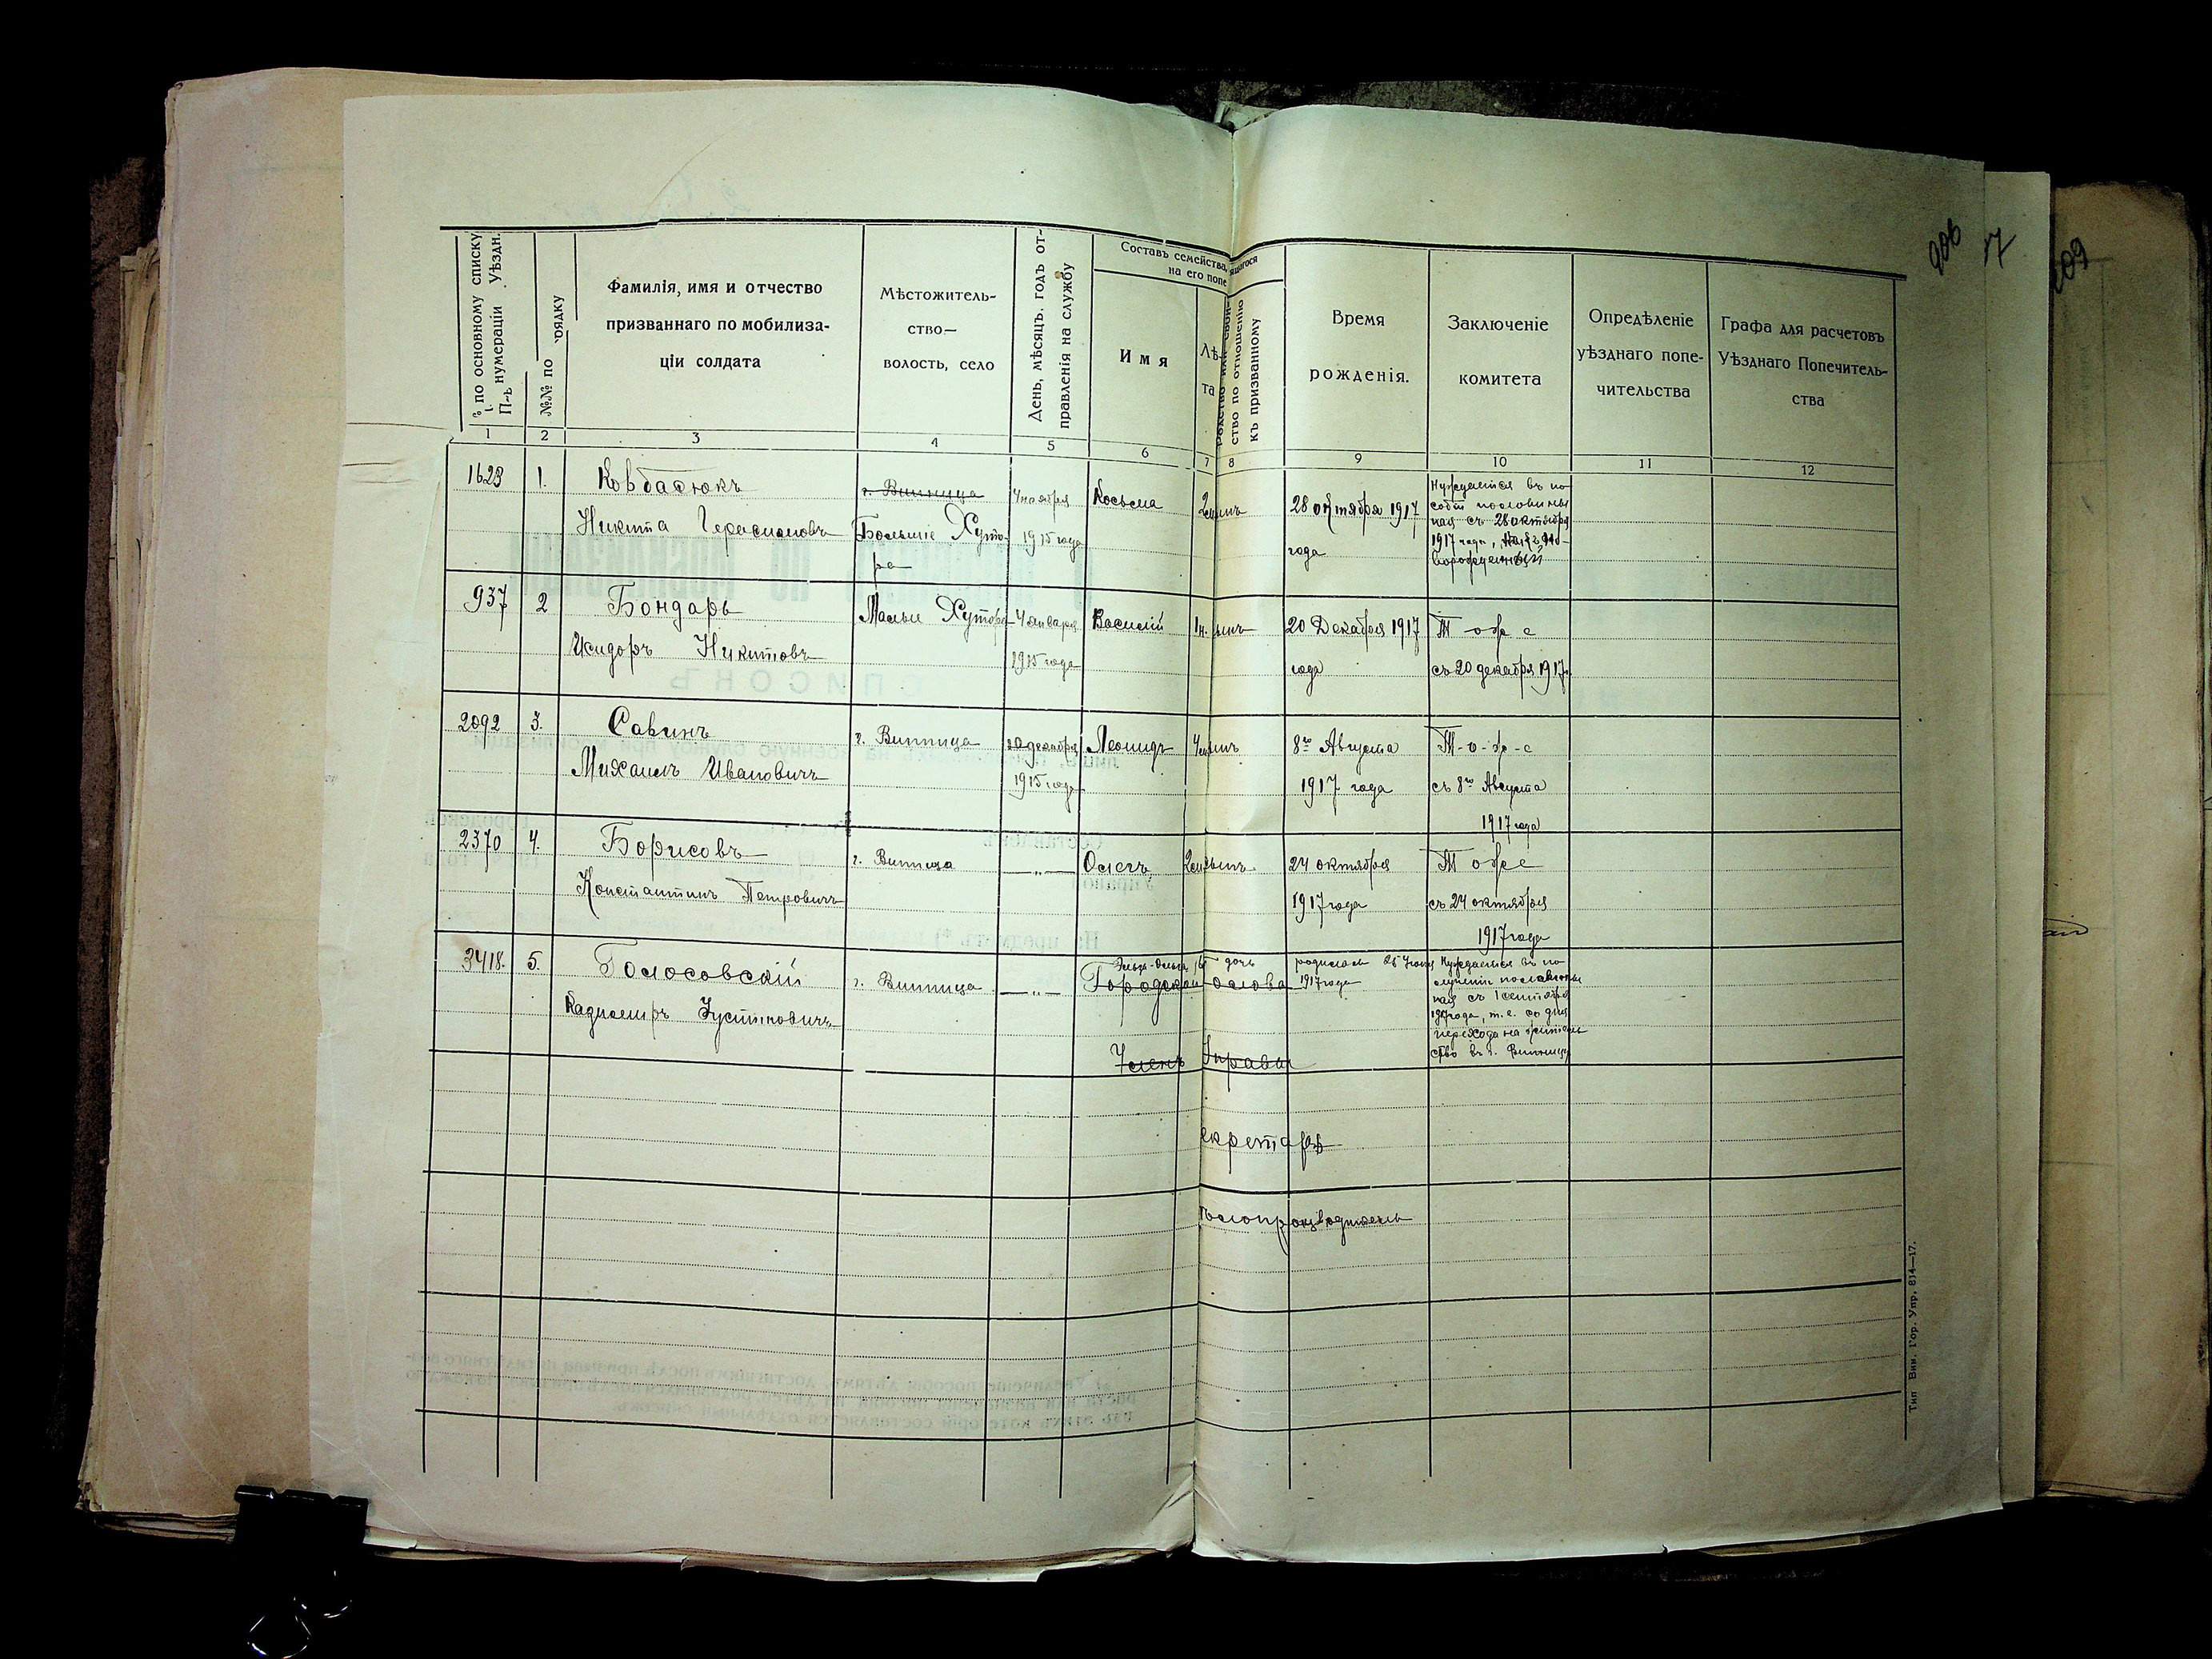 906
17
209
№ по основному списку
П-ъ нумераціи Уѣздн.
№№ по порядку
Фамилія, имя и отчество
призваннаго по мобилиза-
ціи солдата
Мѣстожитель-
ство—
волость, село
День, мѣсяцъ, годъ от-
правленія на службу
Составъ семейства,
на его попе
ящагося
Имя
Лѣ-
та
ство по отношенію
къ призванному
Время
рожденія.
Заключеніе
комитета
Опредѣленіе
уѣзднаго попе-
чительства
Графа для расчетовъ
Уѣзднаго Попечитель-
ства
1 2 3 4 5 6 7 8 9 10 11 12
1623 1. Ковбасюкъ
Никита Герасимовъ
г. Винница
Большіе Хуто-
ра
4 ноября
1915 года
Косьма
сынъ
28 октября 1917
года
Нуждается въ по
собіи половины
пая съ 28 октября
1917 года,
937 2 Бондарь
Исидоръ Никитовъ
Малые Хутора
4 января
1915 года
Василій
1 м. сынъ
20 Декабря 1917
года
То же
съ 20 декабря 1917 г.
2092 3. Савинъ
Михаилъ Ивановичъ
г. Винница
20 декабря
1915 года
Леонидъ
сынъ
8го Августа
1917 года
Т-о-ж-е
съ 8го Августа
1917 года
2370 4. Борисовъ
Константинъ Петровичъ
г. Винница
—„—
Олегъ
сынъ
24 октября
1917 года
То же
съ 24 октября
1917 года
3418. 5. Голосовскій
Кадиміръ Устиновичъ
г. Винница
—„—
дочь
Городской Голова
родилась 25 Іюня
1917 года
Нуждается въ по
лученіи половины
пая съ 1 сентября
1917 года, т.е. со дня
перехода на житель
ство въ г. Винницу
Членъ Управы
екретарь
ѣлопроизводитель
Тип Вин. Гор. Упр, 814—17.